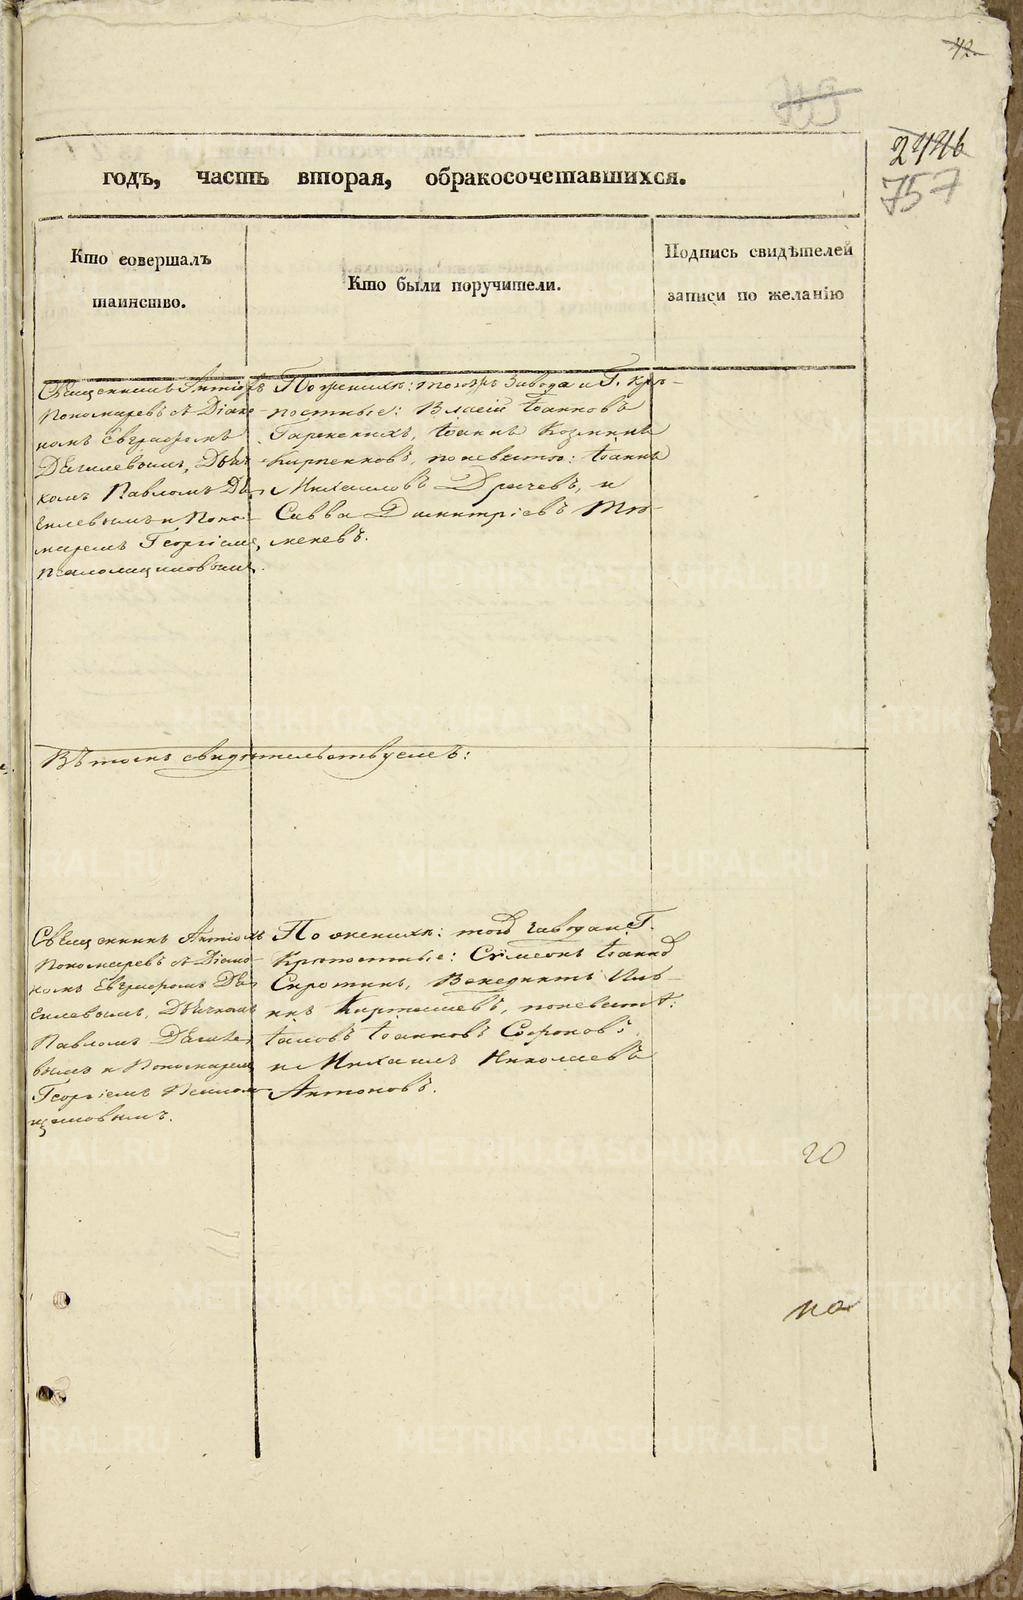 42
2426
757
годъ, часть вторая, обракосочетавшихся.
Кто совершалъ
таинство.
Кто были поручители.
Подпись свидѣтелей
записи по желанію
Священникъ Антіохъ
Пономаревъ съ Діако-
номъ Евграфомъ
Дягилевымъ, Дьяч-
комъ Павломъ Дя-
гилевымъ и Поно-
маремъ Георгіемъ
Псаломщиковымъ.
По женихѣ: того жъ завода и Г. Крѣ-
постные: Власій Іоанновъ
Іоаннъ Козминъ
по невѣстѣ: Іоаннъ
Михаиловъ и
Савва Димитріевъ Тю-
меневъ.
Въ томъ свидѣтельствуемъ:
Священникъ Антіохъ
Пономаревъ съ Діако-
номъ Евграфомъ Дя-
гилевымъ, Дьячкомъ
Павломъ Дягиле-
вымъ и Пономаремъ
Георгіемъ Псалом-
щиковымъ.
По женихѣ: того завода и Г.
Крѣпостные: Сѵмеонъ Іоанновъ
Сиротинъ, Венедиктъ Иль-
инъ по невѣстѣ:
Іаковъ Іоанновъ Софоновъ
и Михаилъ Николаевъ
Антоновъ.
20
по
METRIKI.GASO-URAL.RU